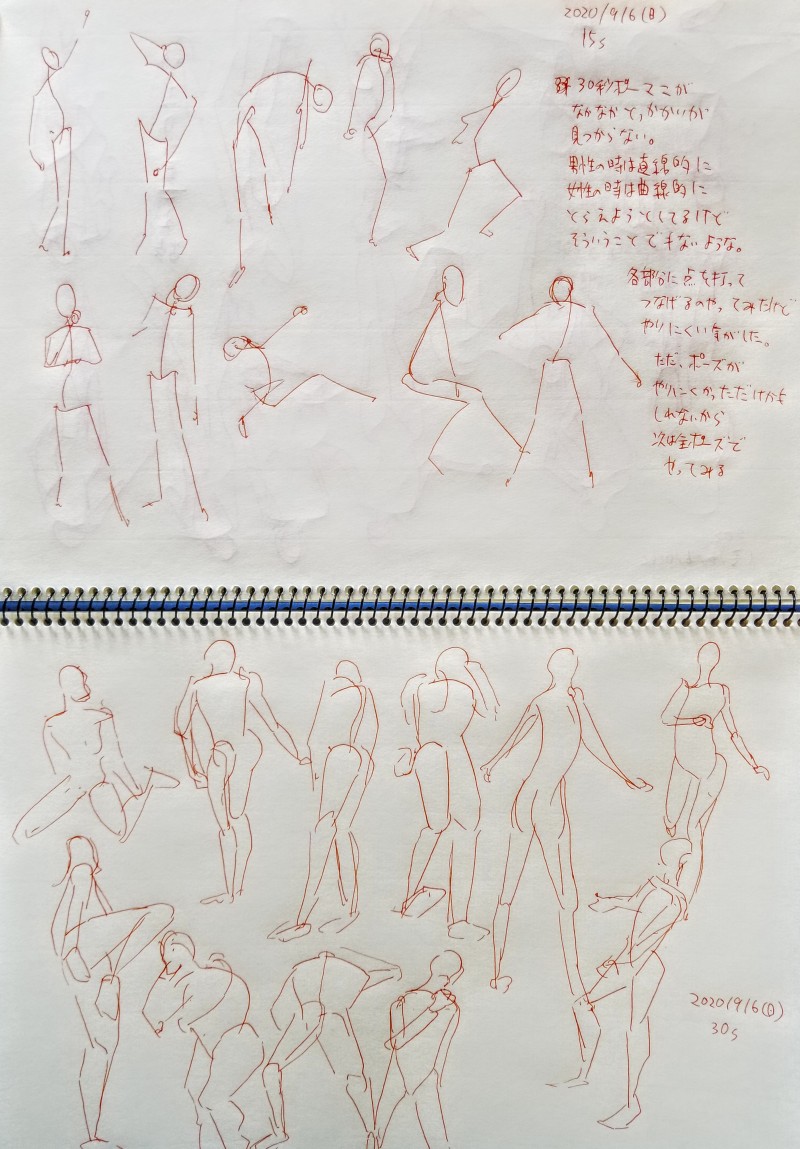 2020/9/6(日)
15s
30秒ポーズこが
なかなかとっかかりが
見つからない。
男性の時は直線的に
女性の時は曲線的に
とらえようとしてるけど
そういうことでもないような。
各部分に点を打って
つなげるのやってみたけど
やりにくい気がした。
ただ、ポーズが
やりにくかっただけかも
しれないから
次は全ポーズで
やってみる
2020/9/6(日)
30s